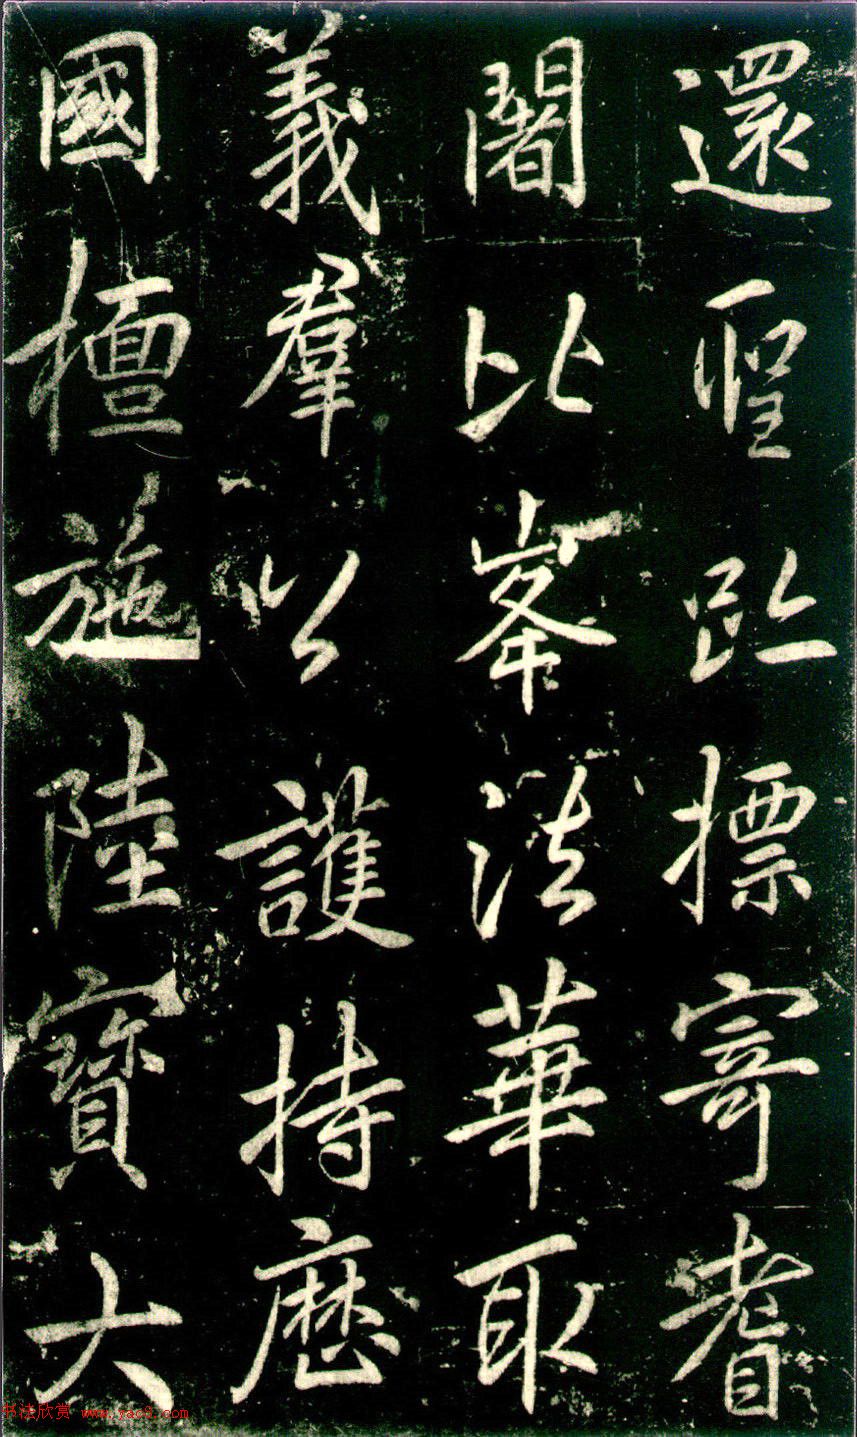 還聖趾標寄耆
闍比峯法華取
義羣以護持歷
國檀施陸寶大
书法欣赏 www.yac8.com